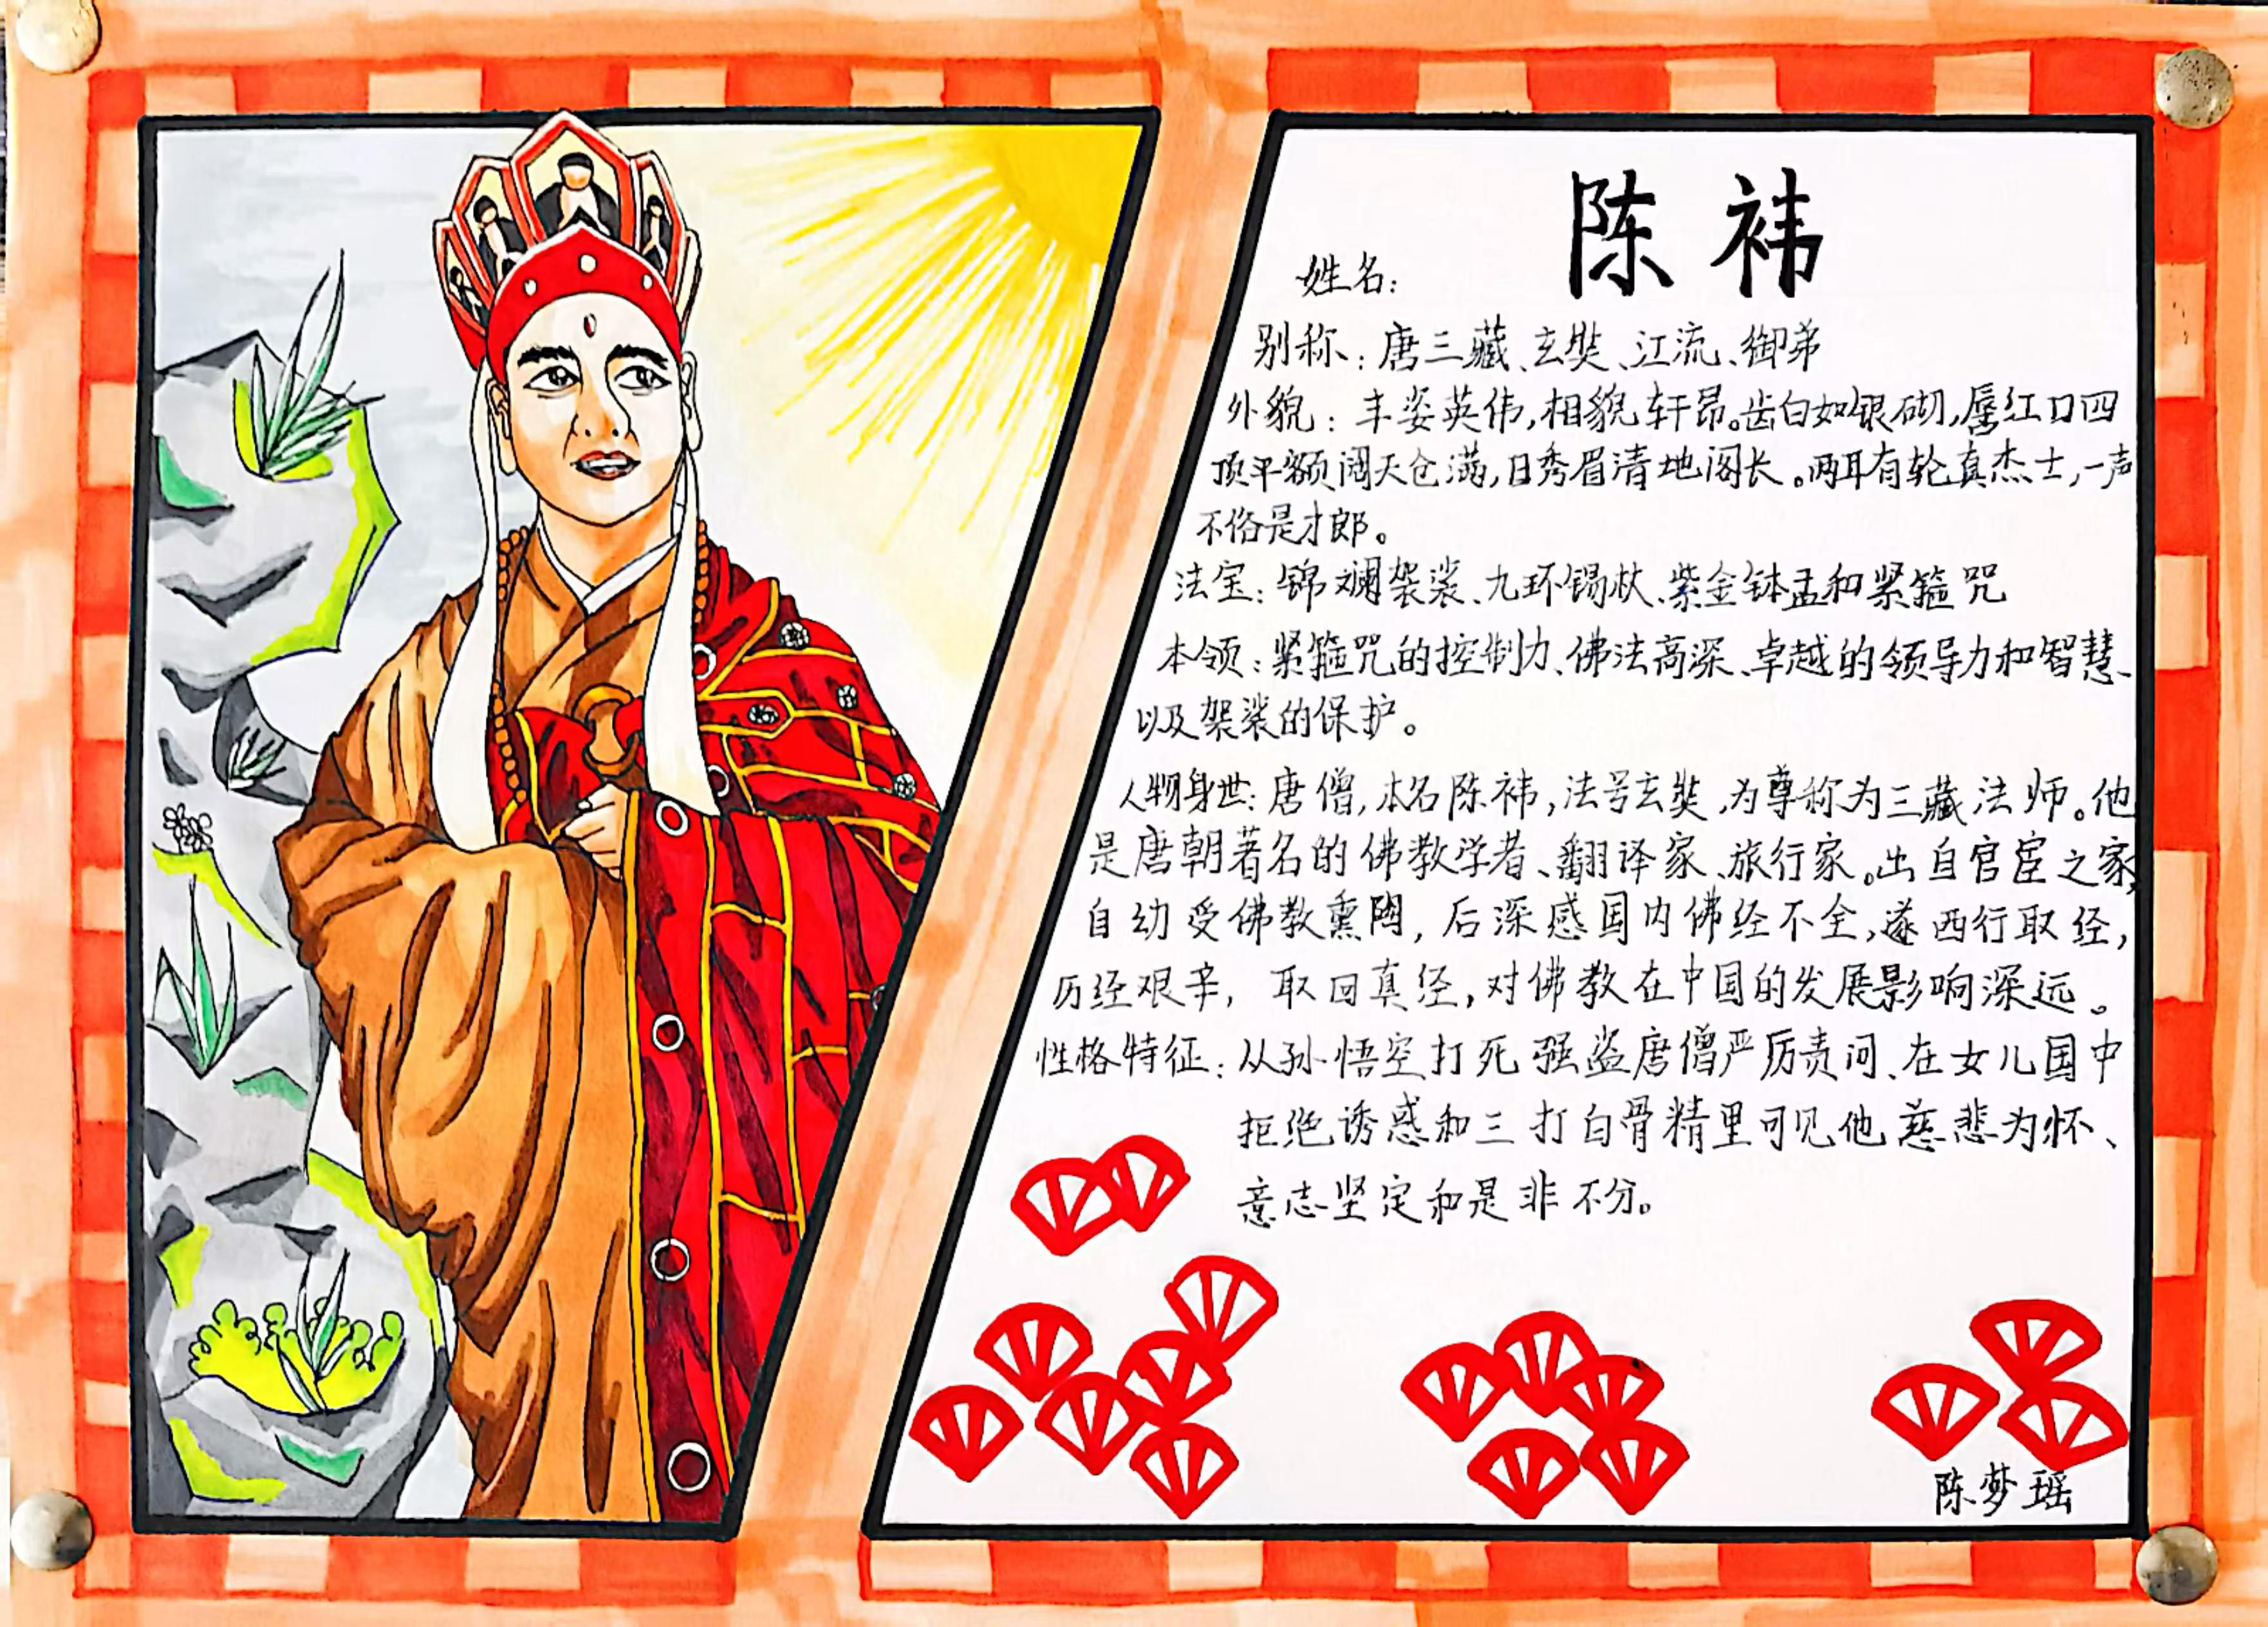 陈祎
姓名:
别称:唐三藏、玄奘、江流、御弟
外貌:丰姿英伟,相貌轩昂。齿白如银砌,唇红口四
顶平额阔天仓满,目秀眉清地阁长。两耳有轮真杰士,一声
不俗是才郎。
法宝:锦斓袈裟、九环锡杖、紫金钵盂和紧箍咒
本领:紧箍咒的控制力、佛法高深、卓越的领导力和智慧、
以及袈裟的保护。
人物身世:唐僧,本名陈祎,法号玄奘,为尊称为三藏法师。他
是唐朝著名的佛教学者、翻译家、旅行家。出自官宦之家,
自幼受佛教熏陶,后深感国内佛经不全,遂西行取经,
历经艰辛,取回真经,对佛教在中国的发展影响深远。
性格特征:从孙悟空打死强盗唐僧严厉责问、在女儿国中
拒绝诱惑和三打白骨精里可见他慈悲为怀、
意志坚定和是非不分。
陈梦瑶